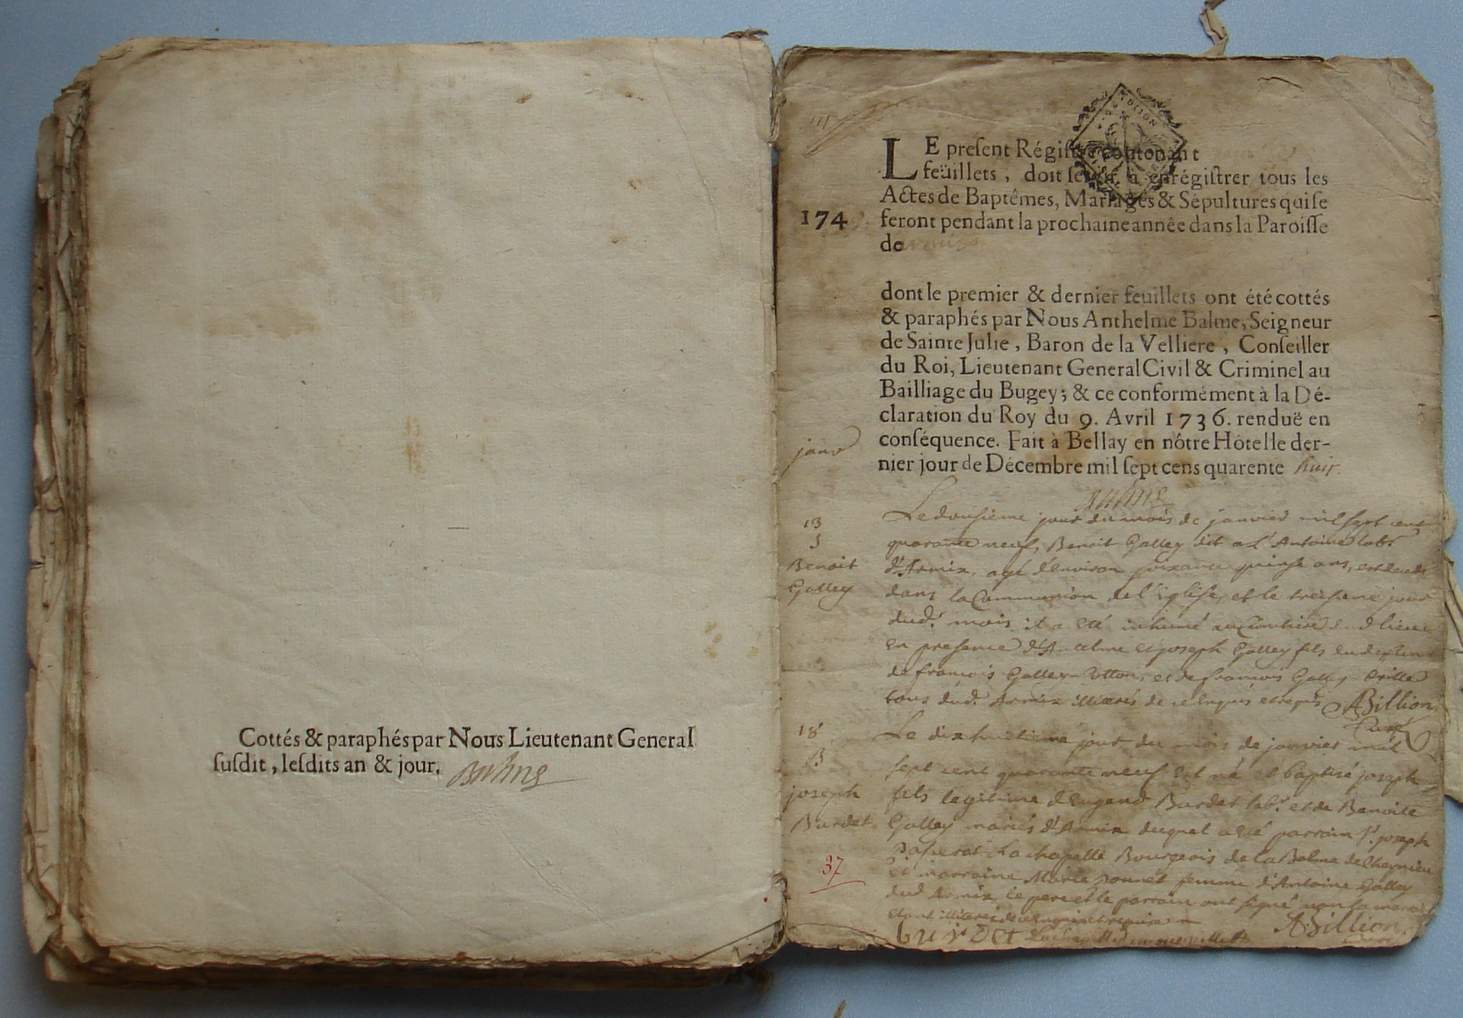 Cottés & paraphés par Nous Lieutenant General
susdit, lesdits an & jour. Balme
LE present Régistre contenant
feüillets, doit servir à enrégistrer tous les
Actes de Baptêmes, Mariages & Sépultures qui se
174 feront pendant la prochaine année dans la Paroisse
de
dont le premier & dernier feuillets ont été cottés
& paraphés par Nous Anthelme Balme, Seigneur
de Sainte Julie, Baron de la Velliere, Conseiller
du Roi, Lieutenant General Civil & Criminel au
Bailliage du Bugey; & ce conformément à la Dé-
claration du Roy du 9. Avril 1736. renduë en
janv conséquence. Fait à Bellay en nôtre Hôtel le der-
nier jour de Décembre mil sept cens quarente huit
Balme
13
S
Benoit
Galley
Le dousième jour du mois de janvier mil sept cent
quarante neuf, Benoit Galley dit a l'Antoine labr
d'Armix, agé d'environ soixante quinse ans, est decedé
dans la Communion de l'Eglise, et le treisieme jour
dud. mois il a eté inhumé au Cimetiere dud lieu
en presence d'Anthelme et joseph Galley fils
de françois Galley et de françois Galley
tous dud. Armix illiteres de ce enquis et requis ABillion
18
B
joseph
Burdet
37
Le dixhuitieme jour du mois de janvier mil
sept cent quarante neuf est né et baptisé joseph
fils legitime d'Eugend Burdet labr. et de Benoite
Galley mariés d'Armix duquel a eté parrain Sr. joseph
La chapelle Bourgeois de la Balme de Cheynieu
et marraine Marie femme d'Antoine Galley
dud Armix le pere et le parrain ont signé non la marai
etant illiterée de ce enquise et requise
ABillion